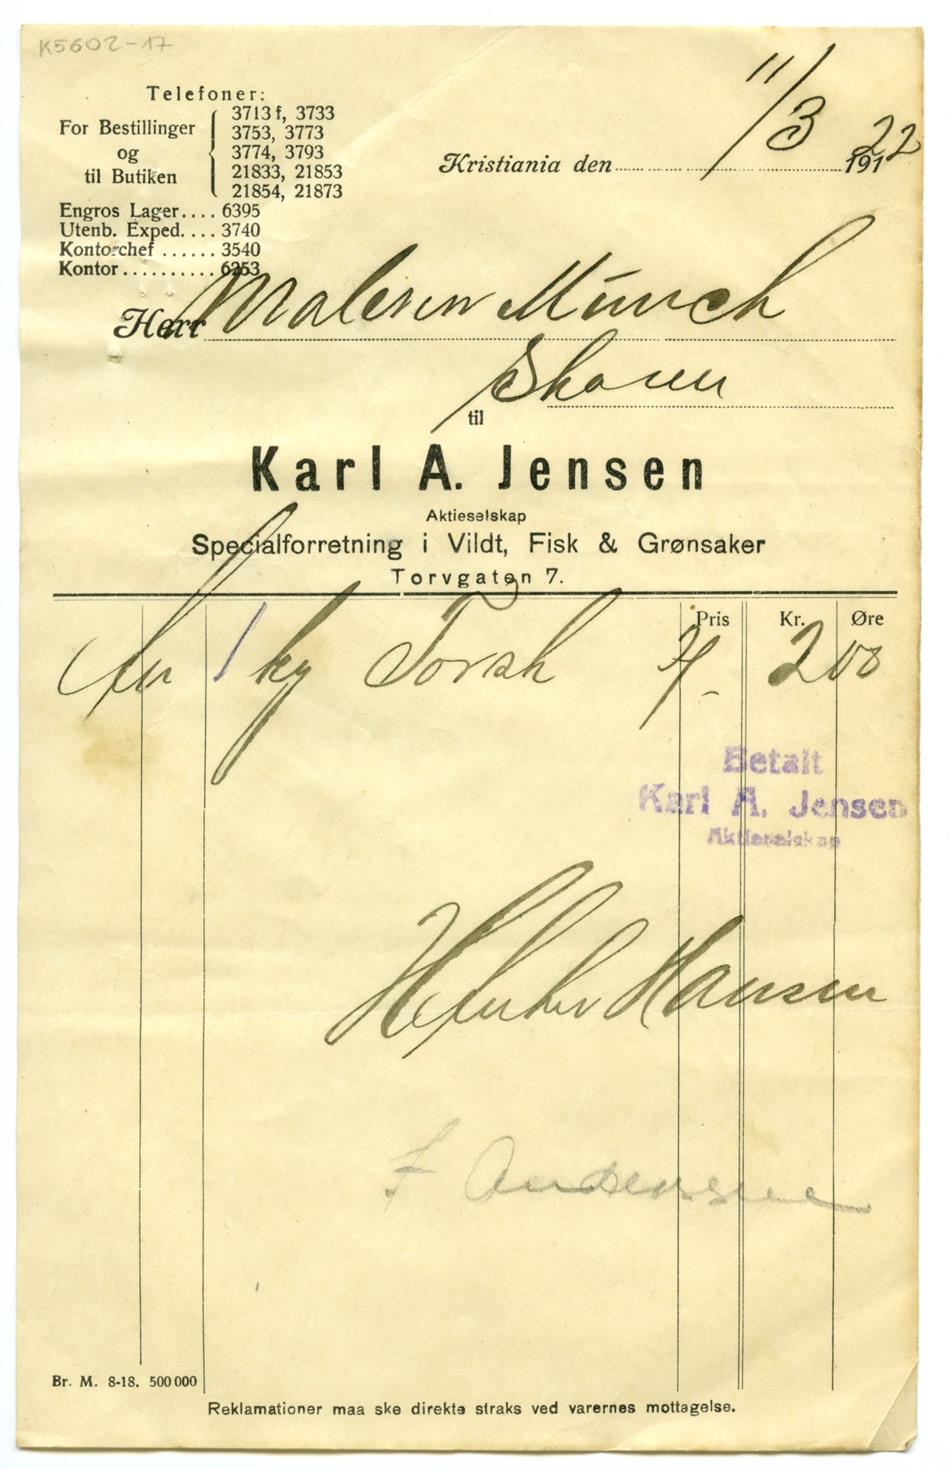 K5602-17
Telefoner:
For Bestillinger og til Butiken
3713 f, 3733
3753, 3773
3774, 3793
21833, 21853
21854, 21873
Engros Lager.... 6395
Utenb. Exped.... 3740
Kontorchef ...... 3540
Kontor .......... 6253
Kristiania den 11/3 1922
Herr Maleren Münch
Skøien
til
Karl A. Jensen
Aktieselskap
Specialforretning i Vildt, Fisk & Grønsaker
Torvgaten 7.
Pris Kr. Øre
1 kg Torsk 2 00
Betalt
Karl A. Jensen
Aktieselskap
Hansen
F Andersen
Br. M. 8-18. 500 000
Reklamationer maa ske direkte straks ved varernes mottagelse.